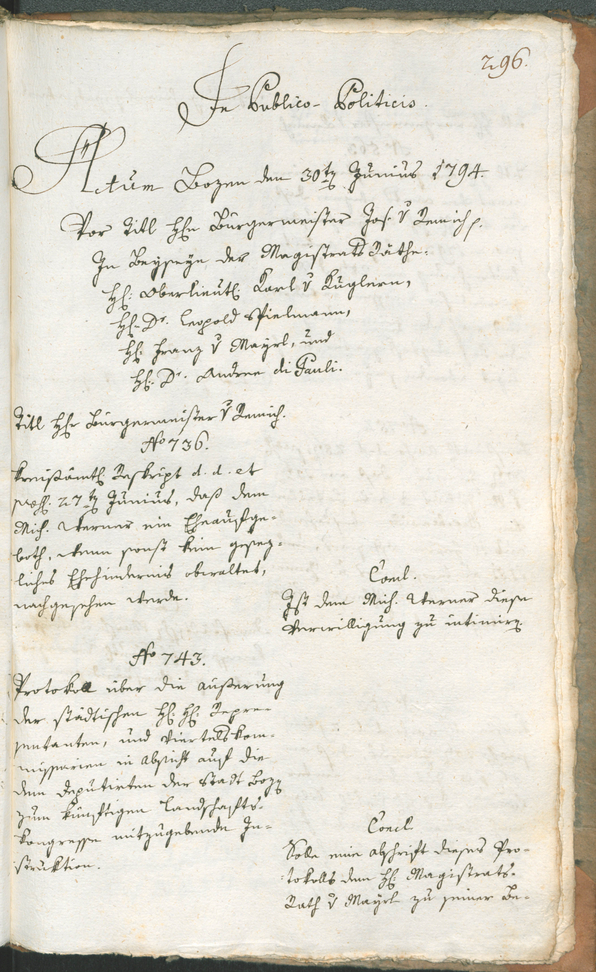 296.
In Publico-Politicis.
Actum Bozen den 30ty Junius 1794.
Vor Titl Hhn Bürgermeister Jos. v Remich p.
In Beyseyn der Magistrats Räthe:
Hh. Oberlieut. Karl v Kuglern,
Hh. Dr. Leopold Spielmann,
Hh. Franz v Mayrl, und
Hh. Dr. Andree di Pauli.
Titl Hhr Bürgermeister v Remich.
No 736.
Kreisamtl Reskript d. d. et
27ty Junius, daß dem
Mich. Werner ein Eheaufge-
both, wenn sonst kein gesez-
liches Ehehinderniß obwaltet,
nachgesehen werde.
Concl.
Ist dem Mich. Werner diese
Verwilligung zu intimirn.
No 743.
Protokoll über die äußerung
der städtischen Hh. Hh. Reprä-
sentanten, und Viertelskom-
missarien in absicht auf die
dem deputirten der Stadt Bozen
zum künftigen landschafts-
kongresse mitzugebende In-
struktion.
Concl
Solle eine abschrift dieses Pro-
tokolls dem Hh. Magistrats-
Rath v Mayrl zu seiner Be-